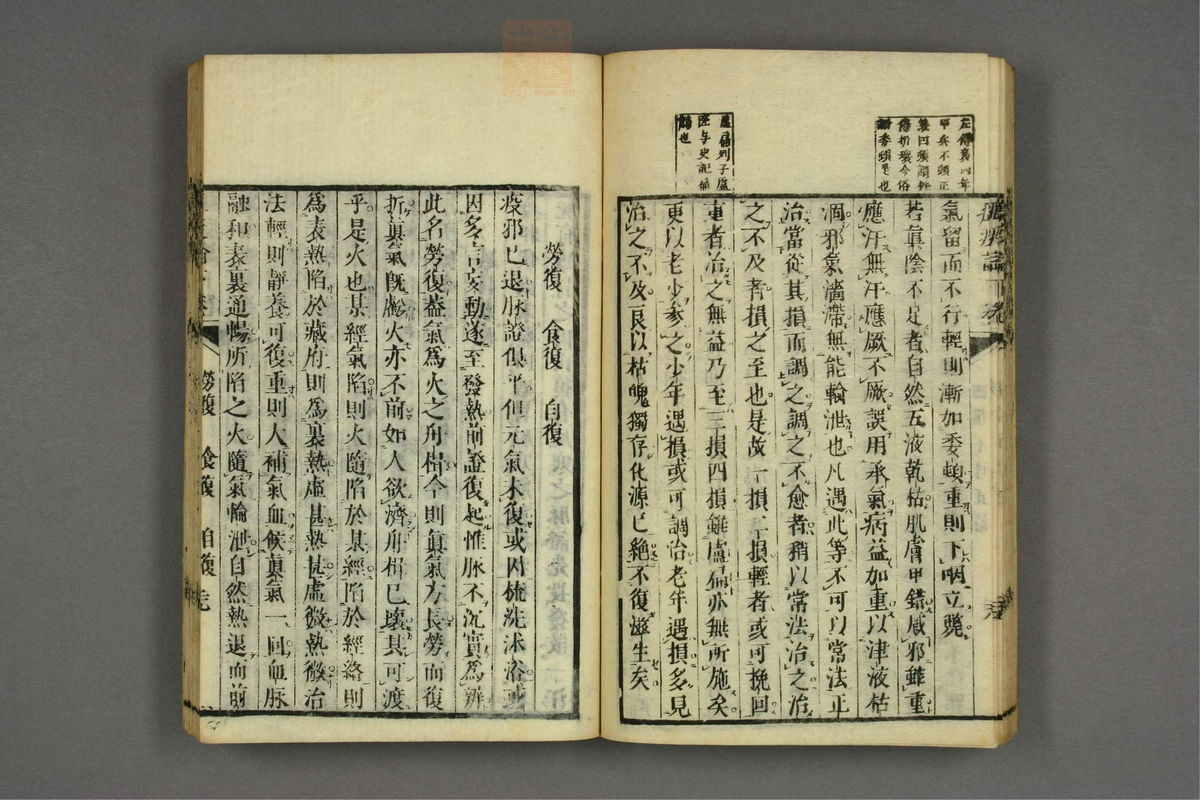 左傳襄四年
甲兵不頓正
也
盧扁列子盧
医与史記扁
鵲也
氣留而不行輕則漸加委頓重則下咽立斃
若眞陰不足者自然五液乾枯肌膚甲錯感邪雖重
應汗無汗應厥不厥誤用承氣病益加重以津液枯
涸邪氣濇滯無能輸泄也凡遇此等不可以常法正
治當從其損而調之調之不愈者稍以常法治之治
之不及者損之至也是故一損二損輕者或可挽回
重者治之無益乃至三損四損雖盧扁亦無所施矣
更以老少參之少年遇損或可調治老年遇損多見
治之不及良以枯魄獨存化源已絕不復滋生矣
勞復　食復　自復
疫邪已退脉證俱平但元氣未復或因梳洗沐浴或
因多言妄動遂至發熱前證復起惟脉不沉實爲辨
此名勞復葢氣爲火之舟楫今則眞氣方長勞而復
折眞氣既虧火亦不前如人欲濟舟楫已壞其可渡
乎是火也某經氣陷則火隨陷於某經陷於經絡則
爲表熱陷於藏府則爲裏熱虛甚熱甚虛微熱微治
法輕則靜養可復重則大補氣血候眞氣一回血脉
融和表裏通暢所陷之火隨氣輸泄自然熱退而前
勞復　食復　自復